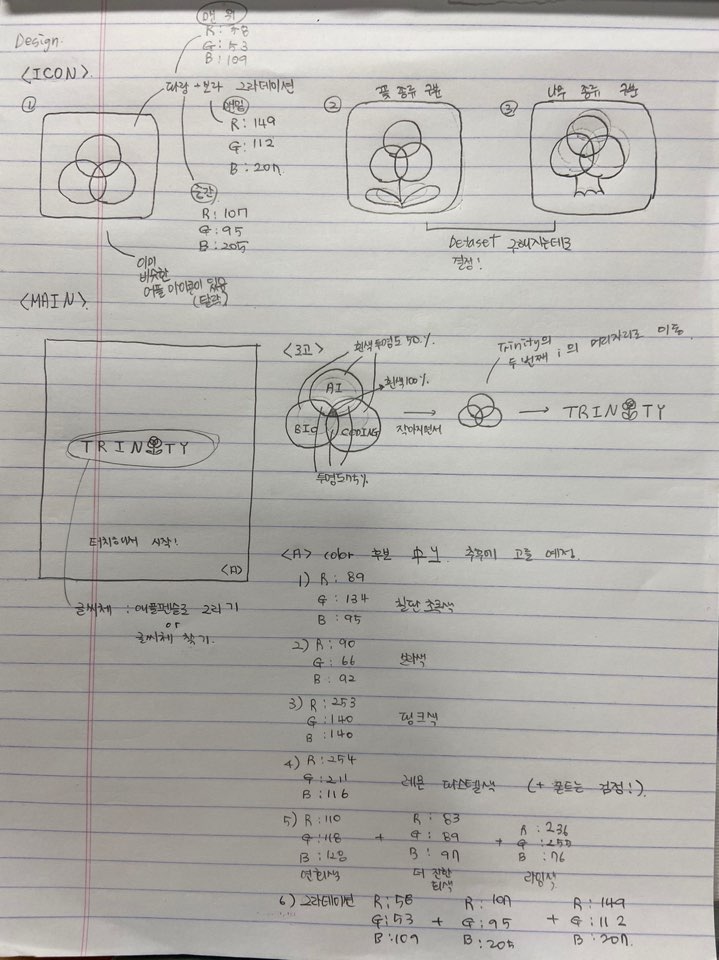 Design.
<ICON>.
맨 위
R: 58
G: 53
B: 109
파랑 + 보라 그라데이션
맨밑
R: 149
G: 112
B: 207
중간
R: 107
G: 95
B: 205
①
이미
비슷한
어플 아이콘이 있음
(탈락)
②
꽃 종류 구분
③
나무 종류 구분
Dataset 구해지는데로
결정!
<MAIN>.
TRINITY
터치해서 시작!
<A>
글씨체 : 애플펜슬로 그리기
or
글씨체 찾기.
<로고>
흰색 투명도 50%
흰색 100%
AI
BIG
CODING
투명도 75%
작아지면서
Trinity의
두번째 i의 머리자리로 이동.
TRINITY
<A> color 후보 추후에 고를 예정.
1) R: 89
G: 134
B: 95
칠판 초록색
2) R: 90
G: 66
B: 92
보라색
3) R: 253
G: 140
B: 140
핑크색
4) R: 254
G: 211
B: 116
레몬 파스텔색 (+ 폰트는 검정!).
5) R: 110
G: 118
B: 128
연회색
+
R: 83
G: 89
B: 97
더 진한
회색
+
R: 236
G: 257
B: 76
라임색
6) 그라데이션
R: 58
G: 53
B: 109
+
R: 107
G: 95
B: 205
+
R: 149
G: 112
B: 207.